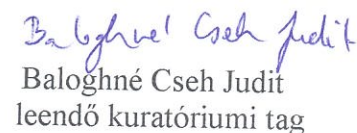 Baloghné Cseh Judit
Baloghné Cseh Judit
leendő kuratóriumi tag